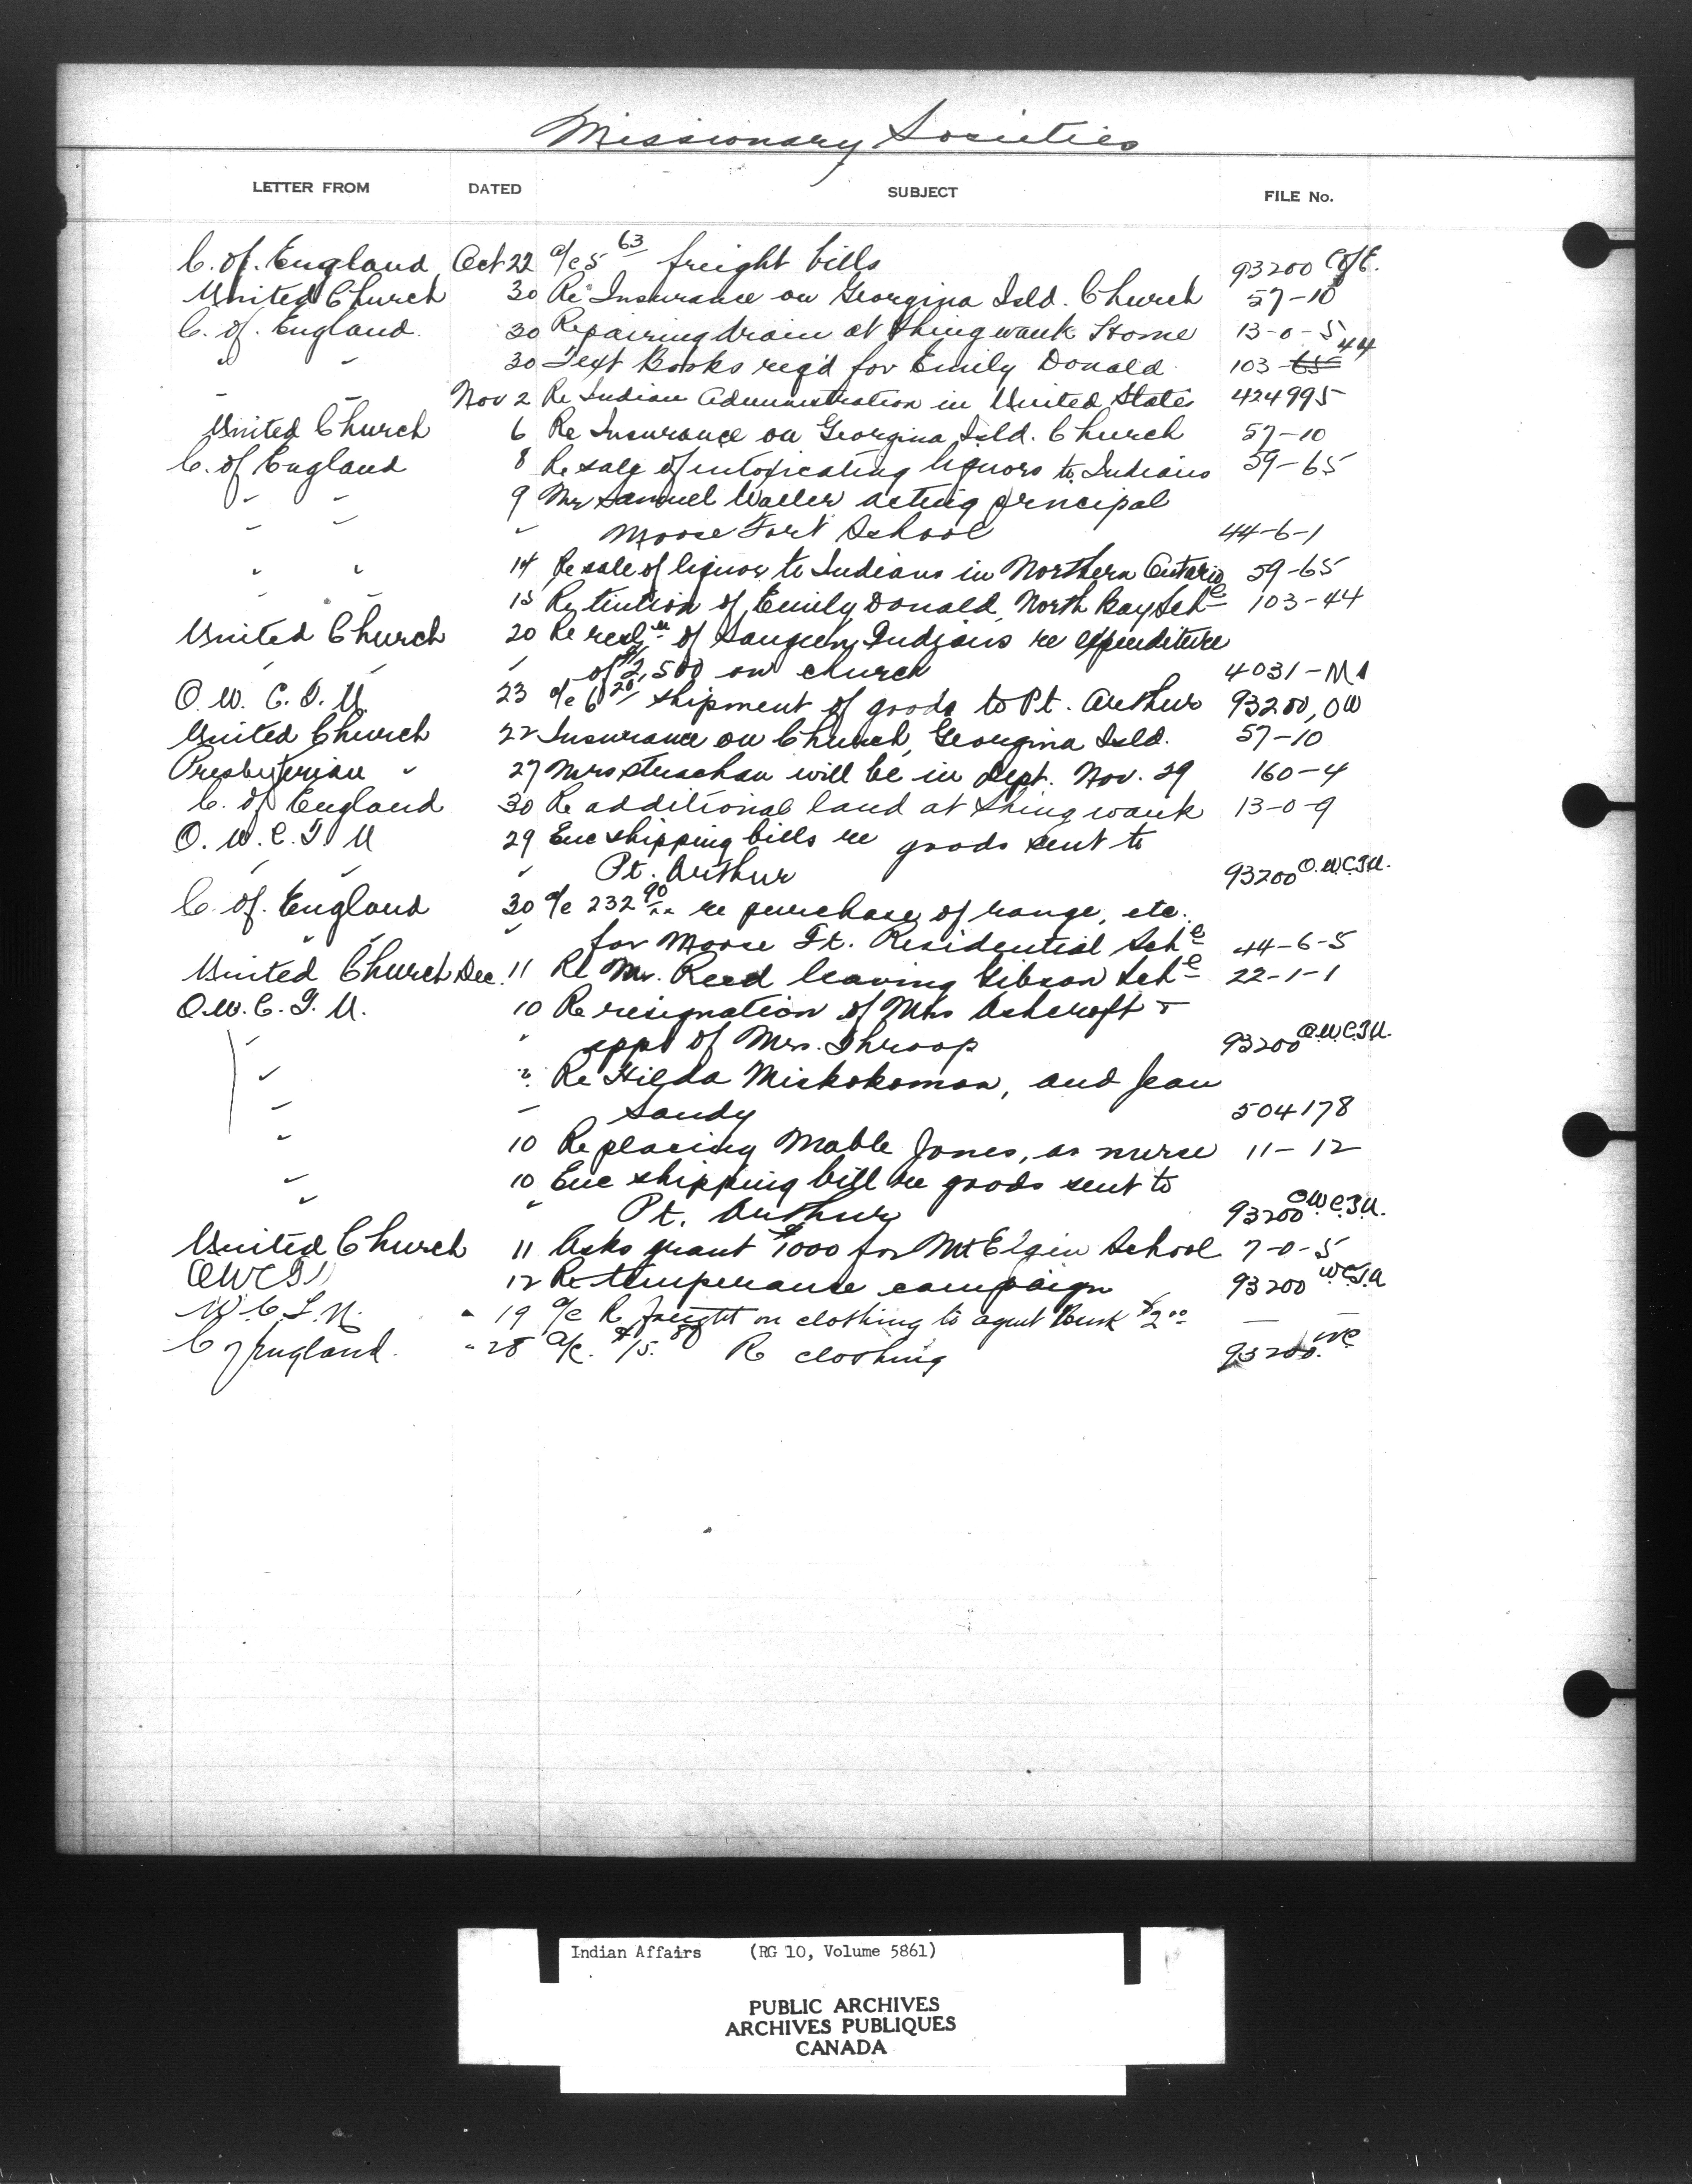 Missionary Societies
LETTER FROM DATED SUBJECT FILE No.
C. of. England Oct 22 a/c 5 63 freight bills 93200 C of E.
United Church 30 Re Insurance on Georgina Isld. Church 57-10
C. of. England. 30 Repairing drain at Shingwauk Home 13-0-5
" " 30 Text Books req'd for Emily Donald 103-65 44
" " Nov 2 Re Indian Administration in United State 424995
United Church 6 Re Insurance on Georgina Isld. Church 57-10
C. of England 8 Re sale of intoxicating liquors to Indians 59-65
" " 9 Mr Samuel Waller acting principal
" " " Moose Fort School 44-6-1
" " 14 Re sale of liquor to Indians in Northern Ontario 59-65
" " 15 Re tuition of Emily Donald, North Bay Sch 103-44
United Church 20 Re resln of Saugeen Indians re expenditure
" " " of $2,500 on church 4031-
O. W. C. T. U. 23 a/c 6 20 shipment of goods to Pt. Arthur 93200, OW
United Church 22 Insurance on Church, Georgina Isld. 57-10
Presbyterian " 27 Mrs Strachan will be in Dept. Nov. 29 160-4
C. of England 30 Re additional land at Shingwauk 13-0-9
O. W. C. T. U 29 Enc shipping bills re goods sent to
" " " Pt. Arthur 93200 O.W.C.T.U.
C. of. England 30 a/c 232 90 re purchase of range, etc.
" " " for Moose Ft. Residential Sch 44-6-5
United Church Dec. 11 Re Mr. Reed leaving Gibson Sch 22-1-1
O.W.C.T.U. 10 Re resignation of Mrs Ashcroft &
" " appt of Mrs. Throop 93200 O.W.C.T.U.
" " Re Hilda Miskokomon, and Jean
" " Sandy 504178
" 10 Re placing Mable Jones, as nurse 11-12
" 10 Enc shipping bill re goods sent to
" " Pt. Arthur 93200 O.W.C.T.U.
United Church 11 Asks grant $1000 for Mt Elgin School 7-0-5
OWCTU 12 Re temperance campaign 93200 W.C.T.U
W. C. T. U. " 19 a/c R freight on clothing to agent $2 00 —
C of England. " 28 a/c. $15. 80 R clothing 93200.
Indian Affairs (RG 10, Volume 5861)
PUBLIC ARCHIVES
ARCHIVES PUBLIQUES
CANADA